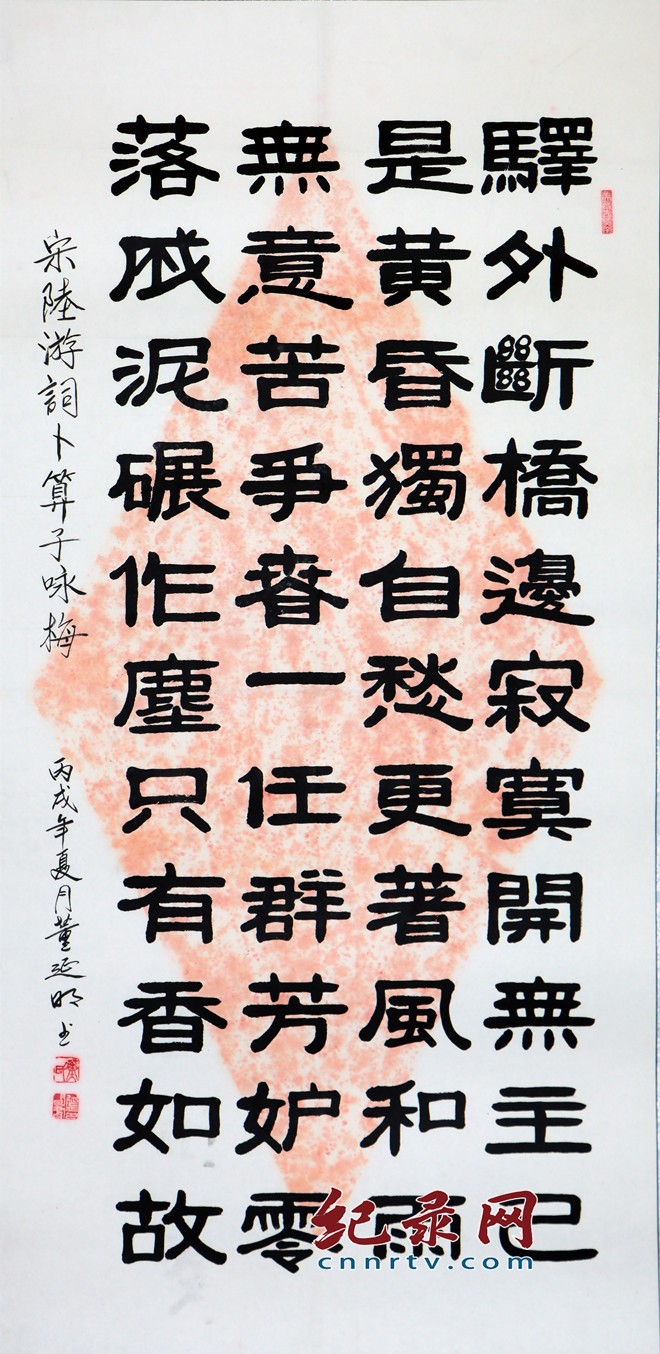 驛外斷橋邊寂寞開無主已
是黄昏獨自愁更著風和雨
無意苦爭春一任群芳妒零
落成泥碾作塵只有香如故
宋陸游詞卜算子咏梅
丙戌年夏月董延明书
纪录网
cnnrtv.com